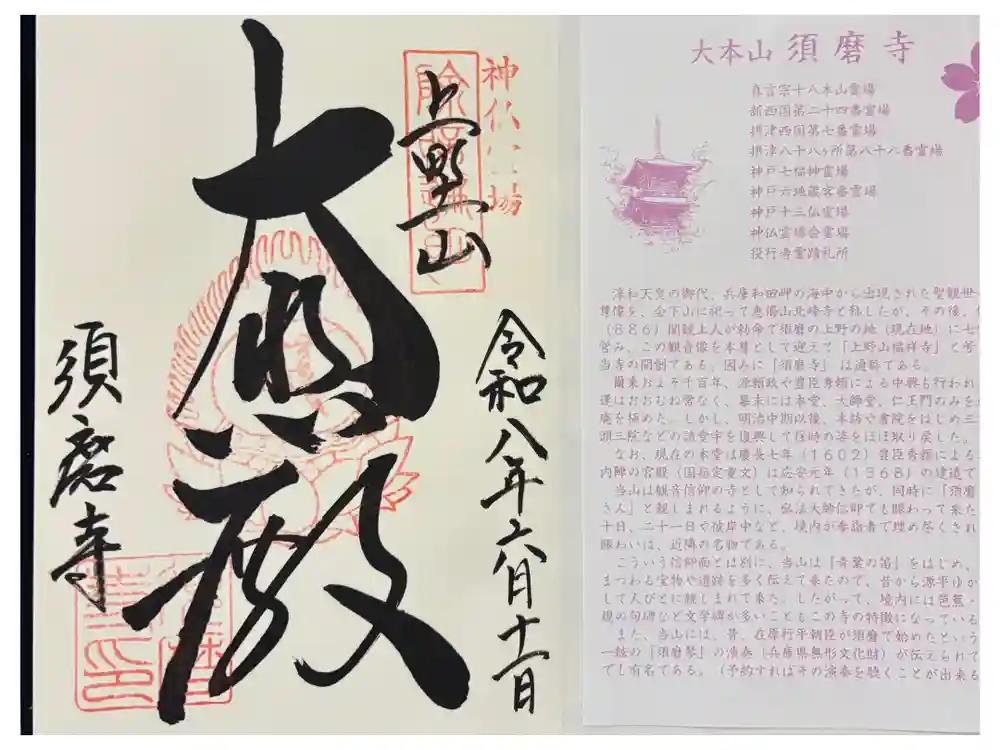 神仏霊場
上野山
大悲殿
須磨寺
令和八年六月十一日
大本山 須磨寺
真言宗十八本山霊場
新西国第二十四番霊場
摂津西国第七番霊場
摂津八十八ヶ所第八十八番霊場
神戸七福神霊場
神戸六地蔵客番霊場
神戸十三仏霊場
神仏霊場会霊場
役行者霊蹟札所
淳和天皇の御代、兵庫和田岬の海中から出現された聖観世
尊像を、会下山に祀って恵偈山北峰寺と称したが、その後、
(886)聞鏡上人が勅命で須磨の上野の地(現在地)に七
営み、この観音像を本尊として迎えて「上野山福祥寺」と号
当寺の開創である。因みに「須磨寺」は通称である。
爾来およそ千百年、源頼政や豊臣秀頼による中興も行われ
運はおおむね常なく、幕末には本堂、大師堂、仁王門のみを
廃を極めた。しかし、明治中期以後、本坊や書院をはじめ三
頭三院などの諸堂宇を復興して往時の姿をほぼ取り戻した。
なお、現在の本堂は慶長七年(1602)豊臣秀頼による
内陣の宮殿(国指定重文)は応安元年(1368)の建造で
当山は観音信仰の寺として知られてきたが、同時に「須磨
さん」と親しまれるように、弘法大師信仰でも賑わって来た
十日、二十一日や彼岸中など、境内が参詣者で埋め尽くされ
賑わいは、近隣の名物である。
こういう信仰面とは別に、当山は「青葉の笛」をはじめ、
まつわる宝物や遺跡を多く伝えて来たので、昔から源平ゆか
して人びとに親しまれて来た。したがって、境内には芭蕉・
規の句碑など文学碑が多いこともこの寺の特徴になっている
また、当山には、昔、在原行平朝臣が須磨で始めたという
一絃の「須磨琴」の演奏(兵庫県無形文化財)が伝えられて
でし有名である。(予約すればその演奏を聴くことが出来る